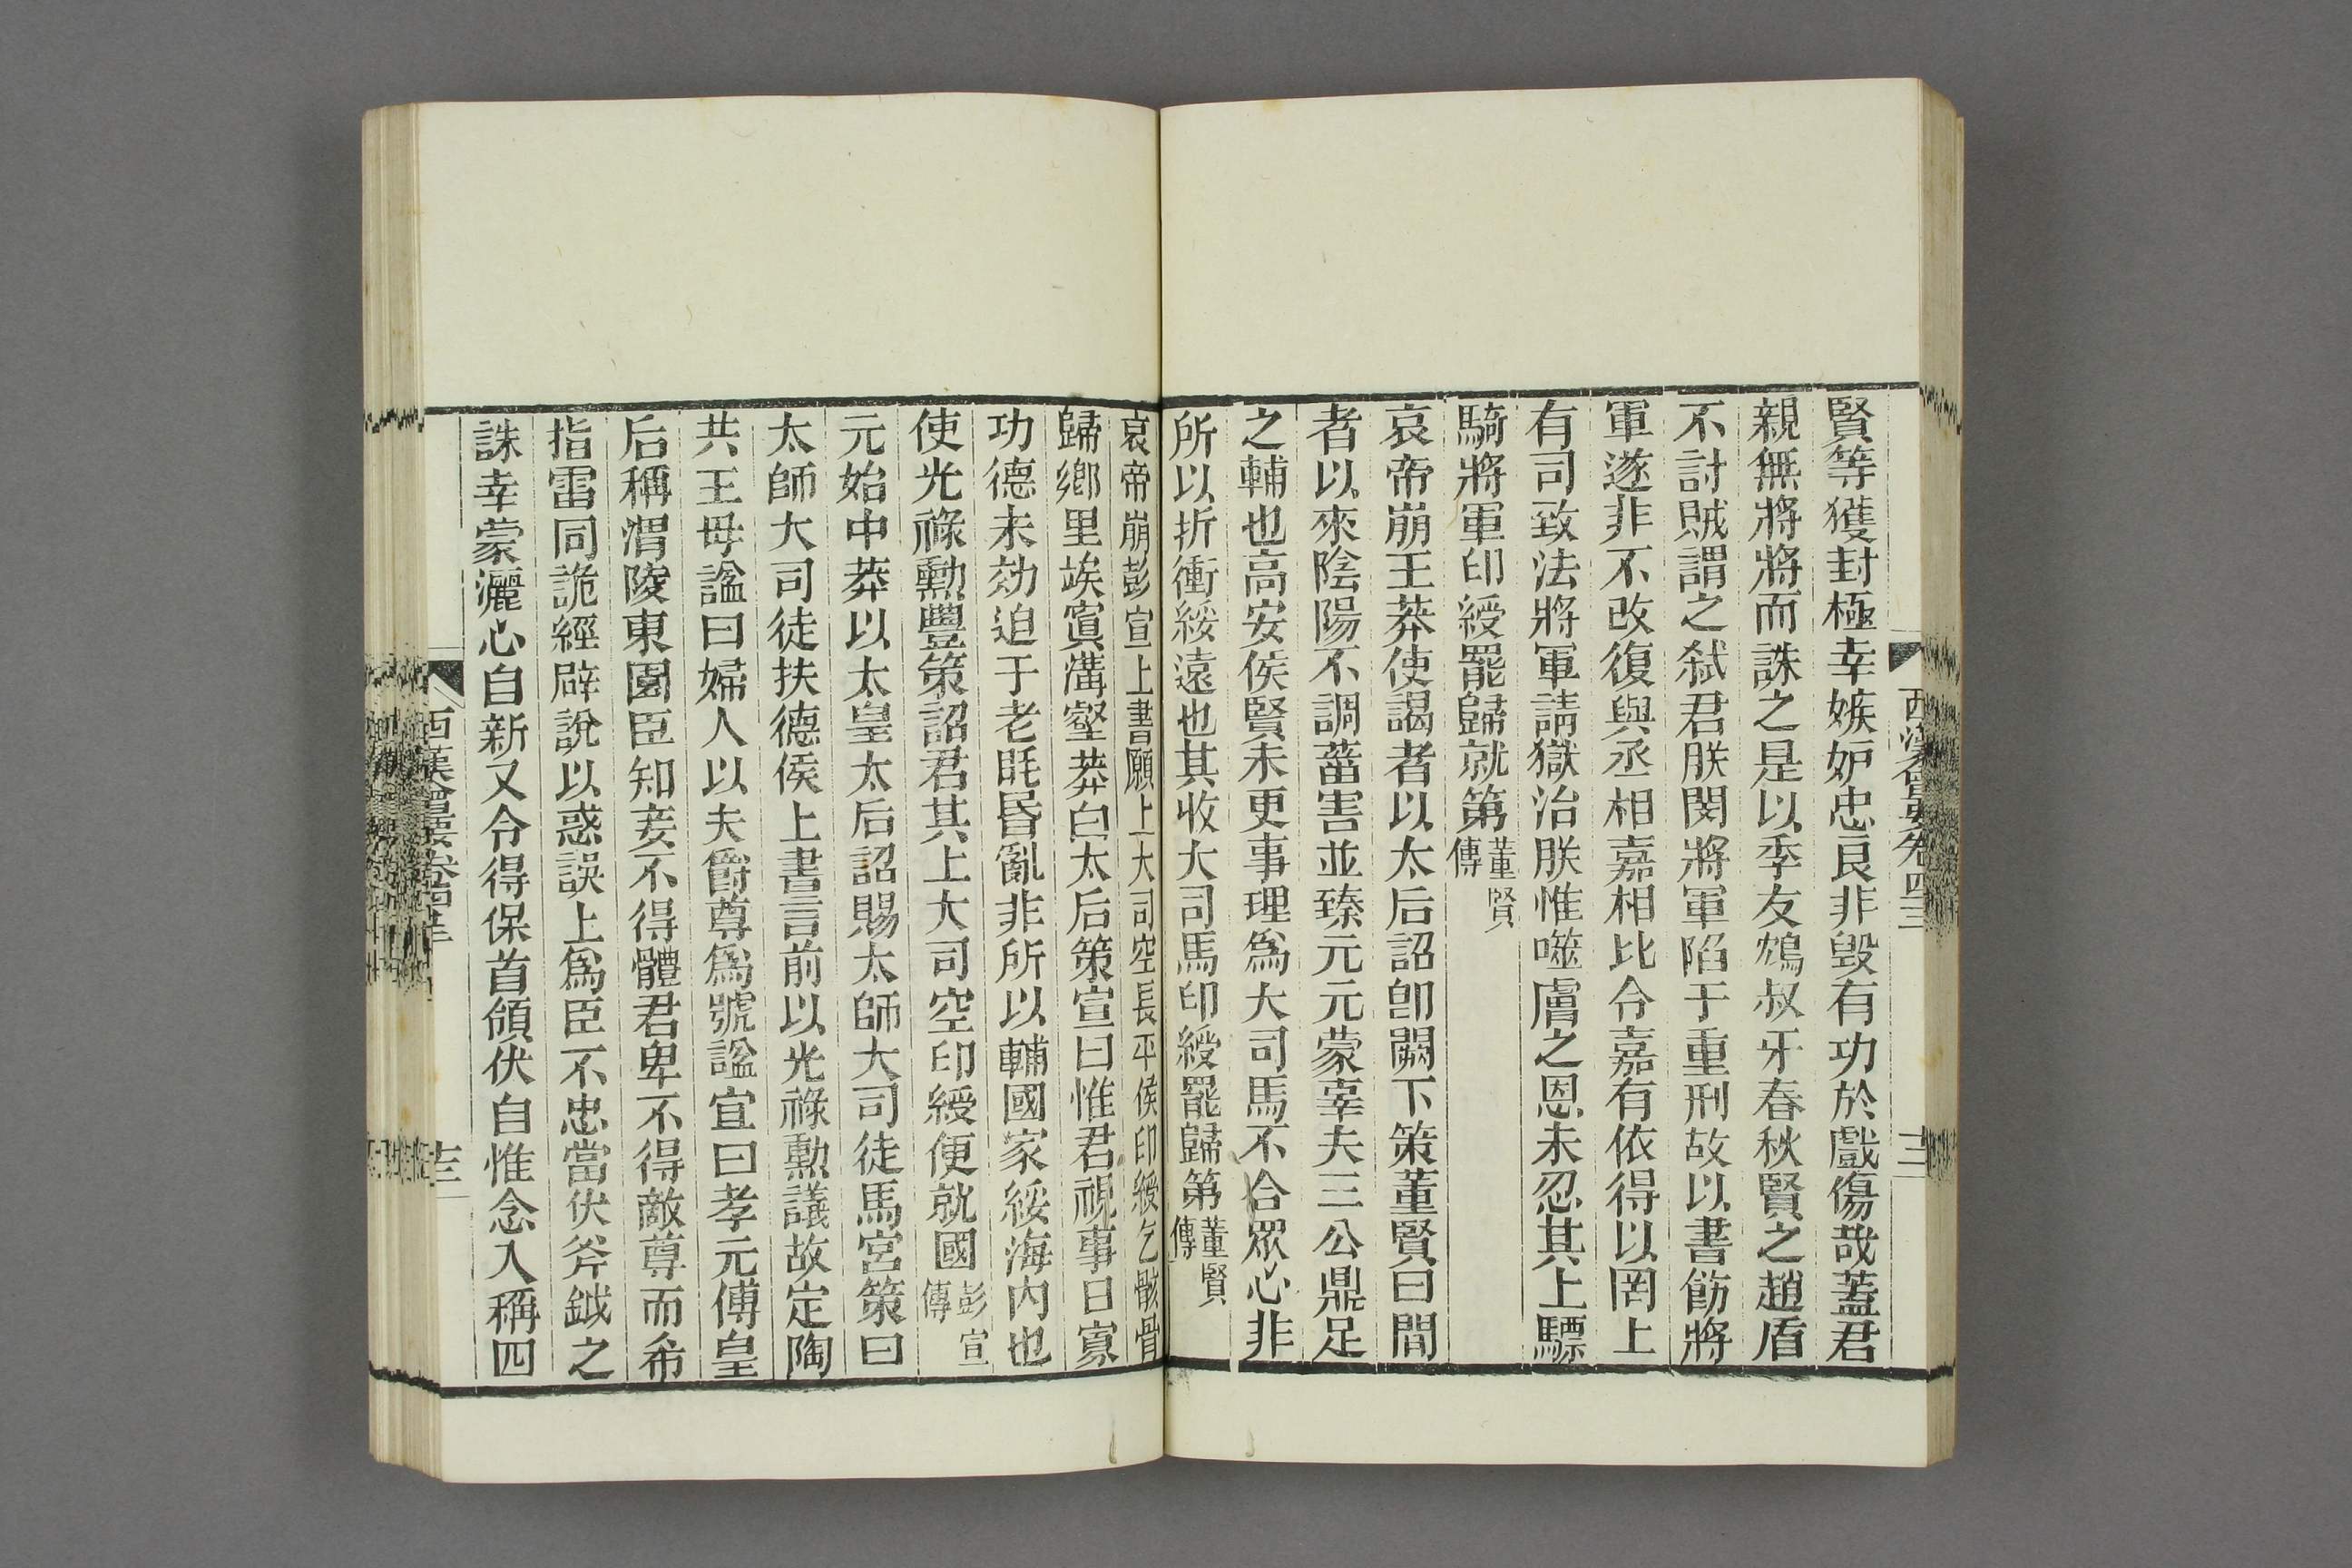 賢等獲封極幸嫉妒忠良非毀有功於戲傷哉蓋君
親無將將而誅之是以季友鴆叔牙春秋賢之趙盾
不討賊謂之弒君朕閔將軍陷于重刑故以書飭將
軍遂非不改復與丞相嘉相比令嘉有依得以罔上
有司致法將軍請獄治朕惟噬膚之恩未忍其上驃
騎將軍印綬罷歸就第董賢傳
哀帝崩王莽使謁者以太后詔卽闕下策董賢曰間
者以來陰陽不調菑害並臻元元蒙辜夫三公鼎足
之輔也高安侯賢未更事理爲大司馬不合眾心非
所以折衝綏遠也其收大司馬印綬罷歸第董賢傳
哀帝崩彭宣上書願上大司空長平侯印綬乞骸骨
歸鄉里竢寘溝壑莽白太后策宣曰惟君視事日寡
功德未効迫于老眊昏亂非所以輔國家綏海內也
使光祿勳豐策詔君其上大司空印綬便就國彭宣傳
元始中莽以太皇太后詔賜太師大司徒馬宮策曰
太師大司徒扶德侯上書言前以光祿勳議故定陶
共王母諡曰婦人以夫爵尊爲號諡宜曰孝元傅皇
后稱渭陵東園臣知妾不得體君卑不得敵尊而希
指雷同詭經辟說以惑誤上爲臣不忠當伏斧鉞之
誅幸蒙灑心自新又令得保首領伏自惟念入稱四
西漢會要卷四十三
十三